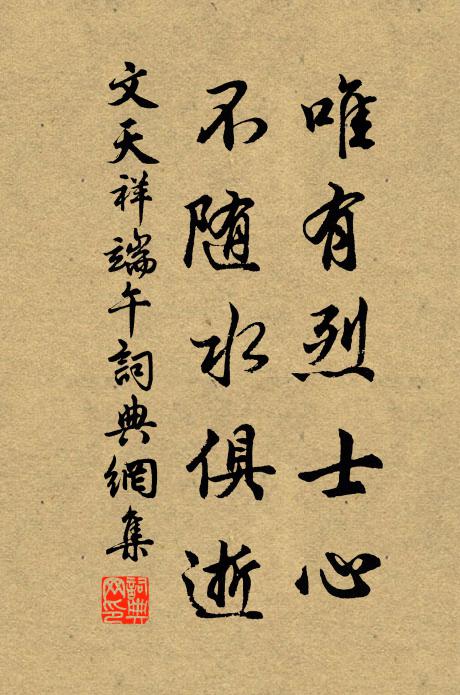 唯有烈士心
不随水俱逝
文天祥端午詞典網集
詞典网印